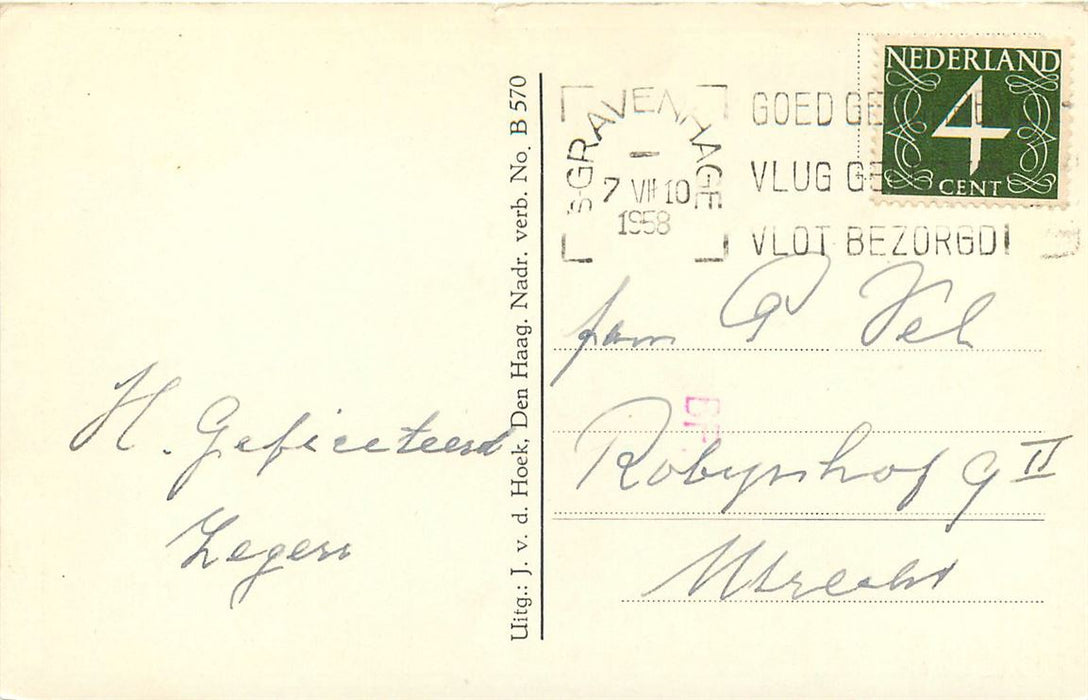 H. Gefeliciteerd
Zegers
Uitg.: J. v. d. Hoek, Den Haag. Nadr. verb. No. B 570
'S-GRAVENHAGE
7 VII 10
1958
GOED GE
VLUG GE
VLOT BEZORGD!
NEDERLAND
4
CENT
fam P Vel
Robijnhof 9 II
Utrecht